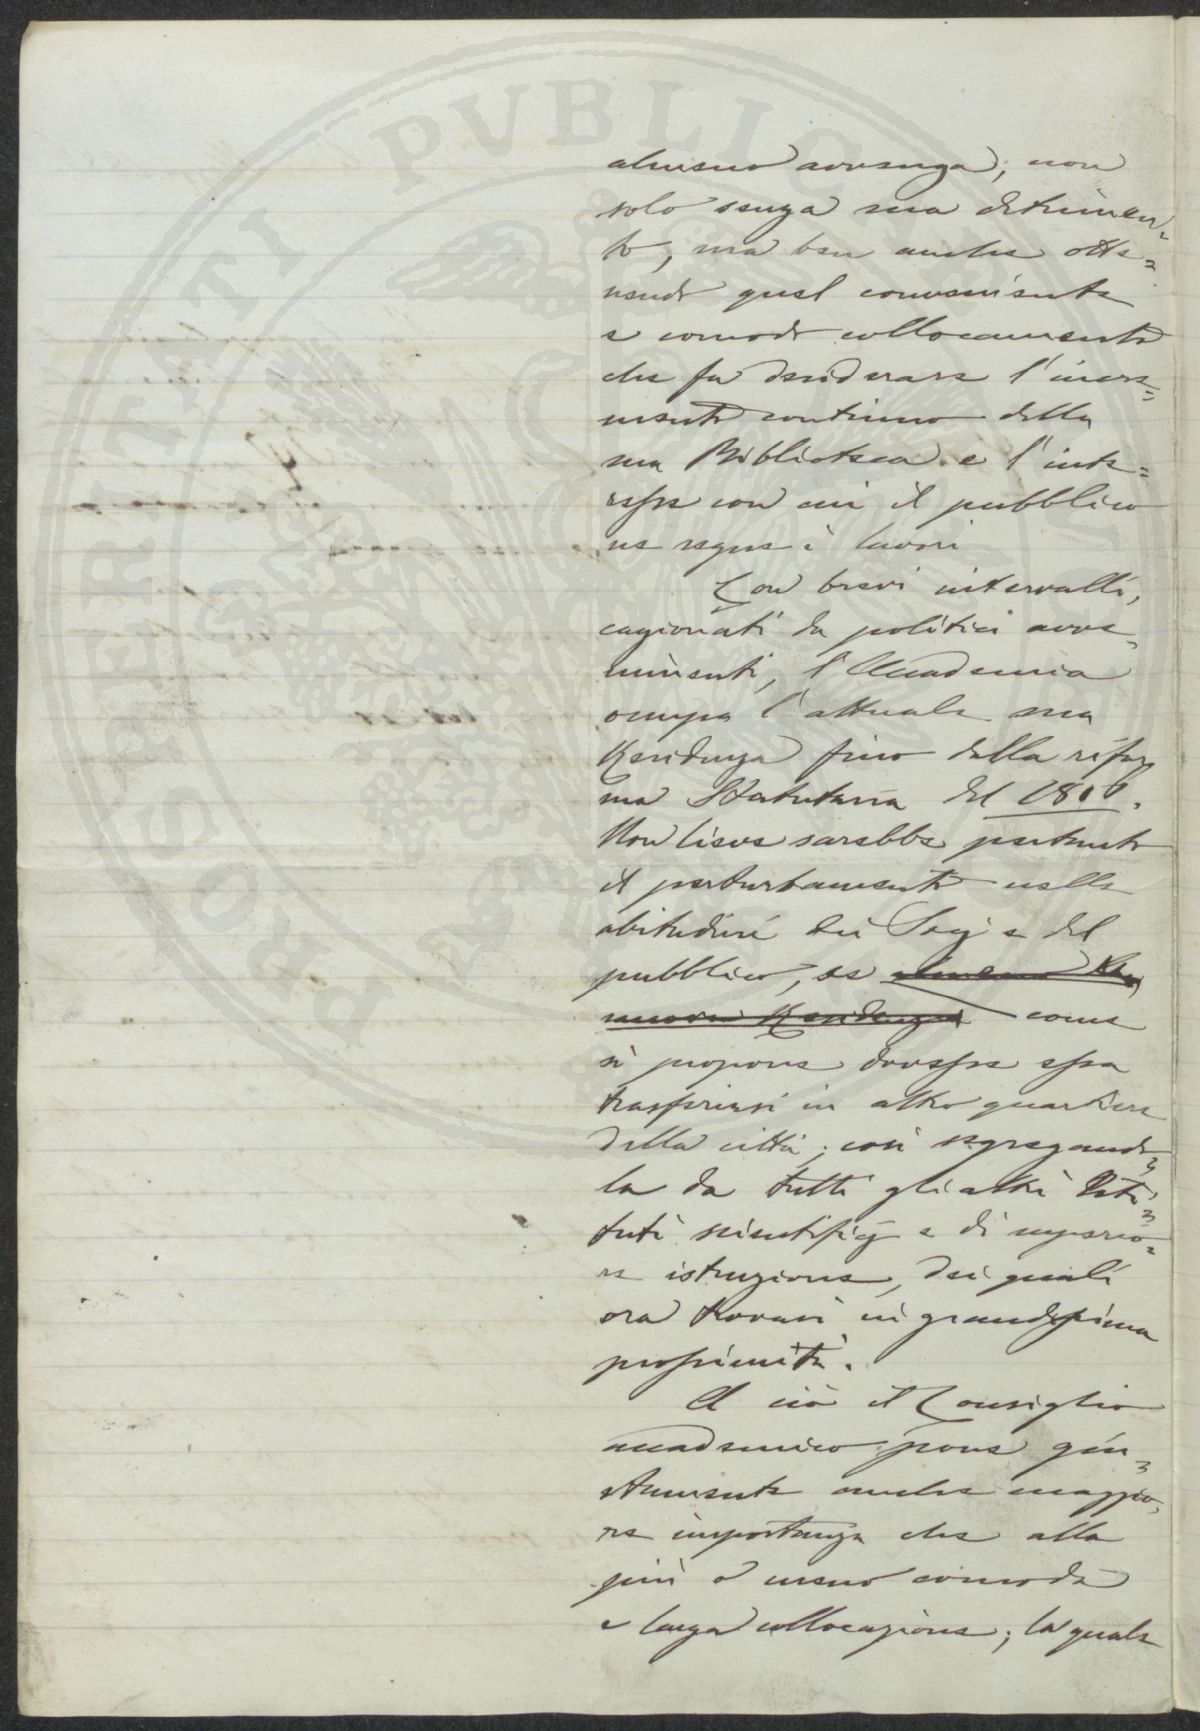 PVBLICAE
PROSPERITATI
almeno avvenga, non
solo senza sua detrimen=
to, ma ben anche otte=
nendo quel conveniente
e comodo collocamento
che fa desiderare l'incre=
mento continuo della
sua Biblioteca e l'inte=
resse con cui il pubblico
ne segue i lavori
Con brevi intervalli,
cagionati da politici avve=
nimenti, l'Accademia
occupa l'attuale sua
Residenza fino dalla rifor
ma Statutaria del 1810.
Non lieve sarebbe pertanto
il perturbamento nelle
abitudini dei Socj e del
pubblico, se
nuova Residenza come
si propone dovesse essa
trasferirsi in altro quartiere
della città, così segregando=
la da tutti gli altri Isti=
tuti scientificj e di superio=
re istruzione, dei quali
ora trovasi in grandissima
prossimità.
A ciò il Consiglio
accademico pone giu=
stamente anche maggio=
re importanza che alla
più o meno comoda
e larga collocazione; la quale